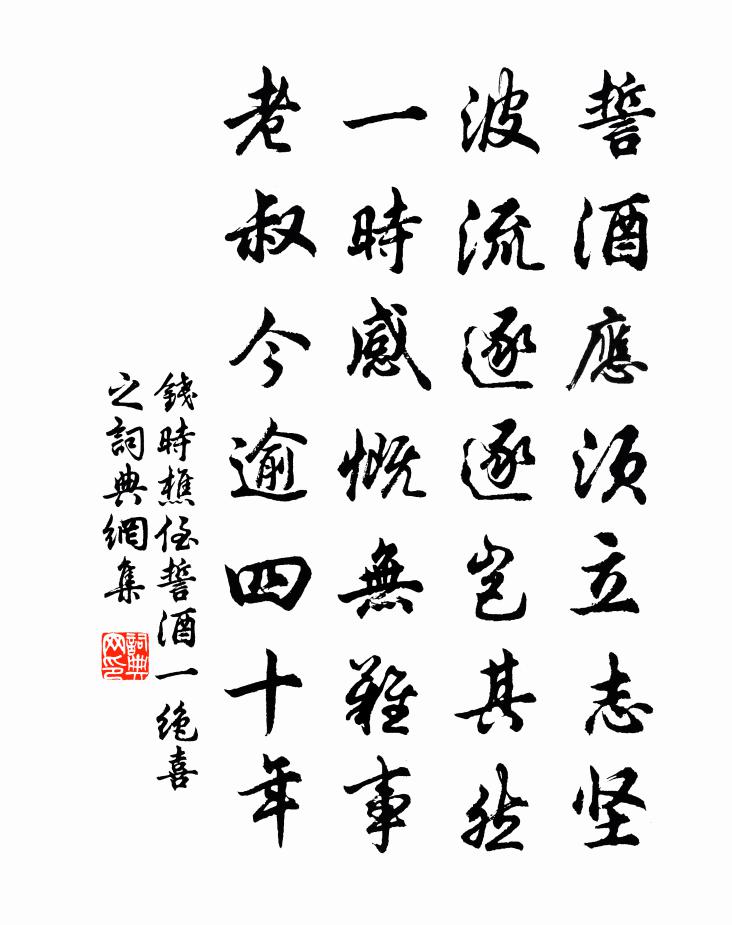 誓酒應須立志坚
波流逐逐岂其然
一時感慨無難事
老叔今逾四十年
錢時樵侄誓酒一绝喜
之詞典網集
詞典
网印